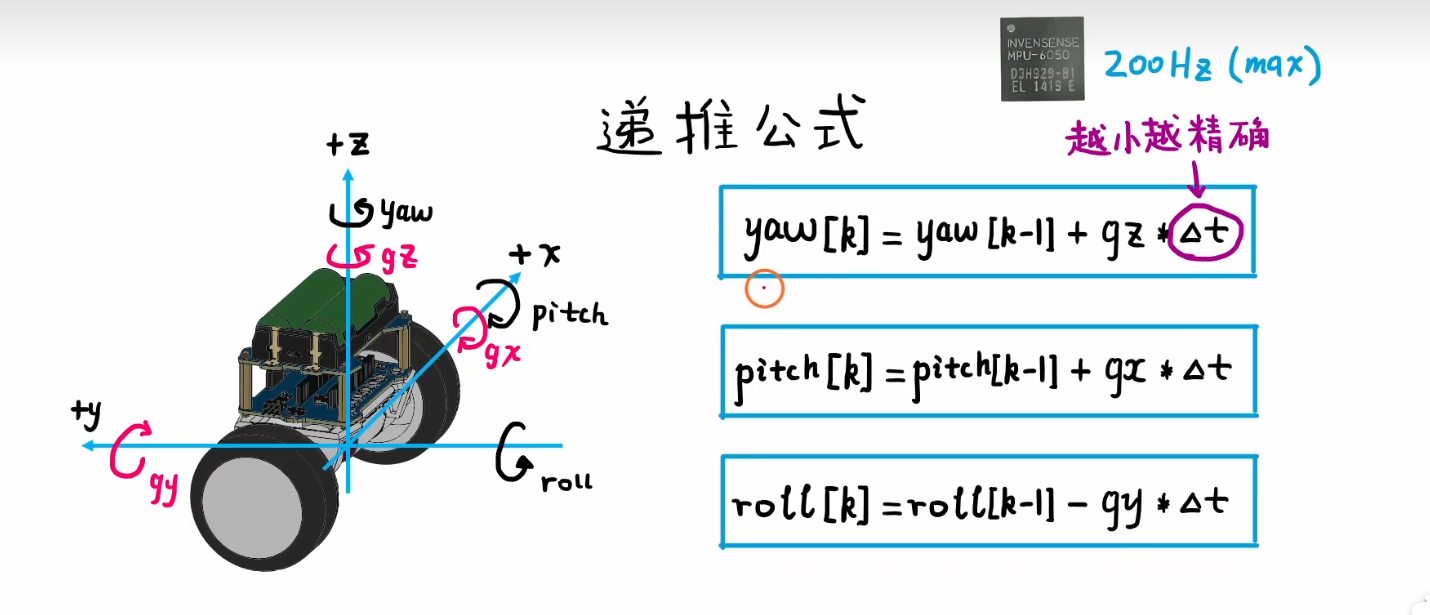 INVENSENSE
MPU-6050
D3H929-B1
EL 1419 E
200Hz (max)
递推公式
越小越精确
+z
yaw
gz
+x
pitch
gx
+y
gy
roll
yaw[k] = yaw[k-1] + gz * Δt
pitch[k] = pitch[k-1] + gx * Δt
roll[k] = roll[k-1] - gy * Δt